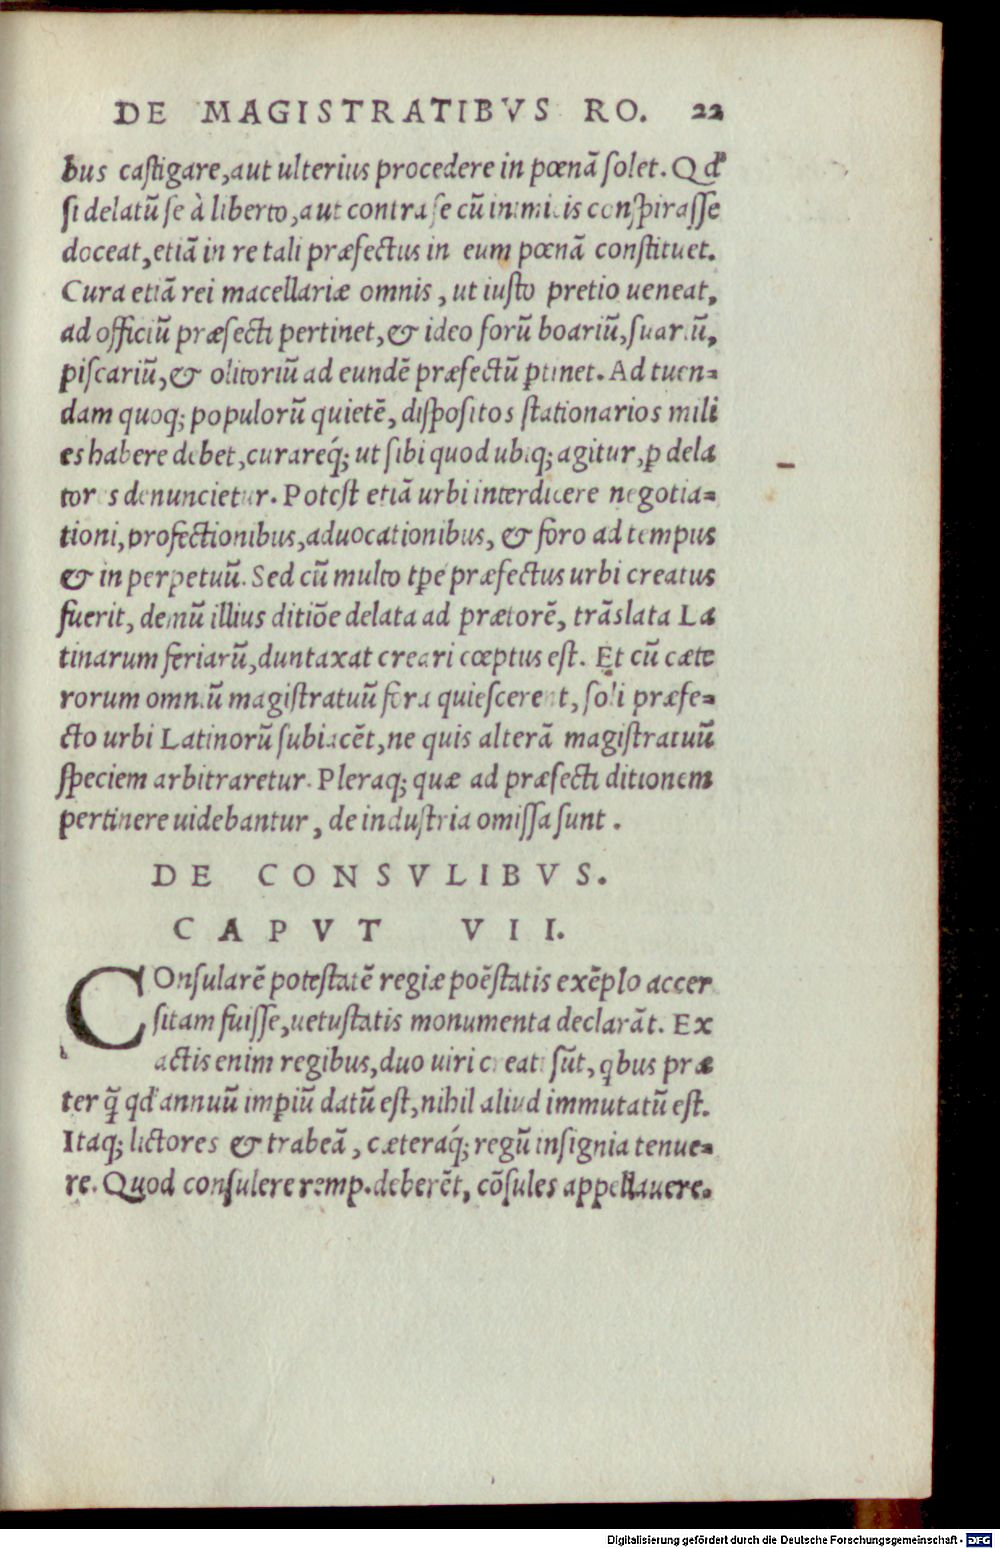 DE MAGISTRATIBVS RO. 22
bus castigare, aut ulterius procedere in pœnā solet. Qđ
si delatū se à liberto, aut contra se cū inimicis conspirasse
doceat, etiā in re tali præfectus in eum pœnā constituet.
Cura etiā rei macellariæ omnis, ut iusto pretio ueneat,
ad officiū præfecti pertinet, & ideo forū boariū, suariū,
piscariū, & olitoriū ad eundē præfectū ptinet. Ad tuen-
dam quoq; populorū quietē, dispositos stationarios mili
es habere debet, curareq́; ut sibi quod ubiq; agitur, p dela
tores denuncietur. Potest etiā urbi interdicere negotia-
tioni, profectionibus, aduocationibus, & foro ad tempus
& in perpetuū. Sed cū multo tpe præfectus urbi creatus
fuerit, demū illius ditiōe delata ad prætorē, trāslata La
tinarum feriarū, duntaxat creari cœptus est. Et cū cæte
rorum omniū magistratuū fora quiescerent, soli præfe-
cto urbi Latinorū subiacēt, ne quis alterā magistratuū
speciem arbitraretur. Pleraq; quæ ad præfecti ditionem
pertinere uidebantur, de industria omissa sunt.
DE CONSVLIBVS.
CAPVT VII.
COnsularē potestatē regiæ poēstatis exēplo accer
sitam fuisse, uetustatis monumenta declarāt. Ex
actis enim regibus, duo uiri creati sūt, qbus præ
ter q̄ qđ annuū impiū datū est, nihil aliud immutatū est.
Itaq; lictores & trabeā, cæteraq́; regū insignia tenue-
re. Quod consulere remp. deberēt, cōsules appellauere.
Digitalisierung gefördert durch die Deutsche Forschungsgemeinschaft - DFG